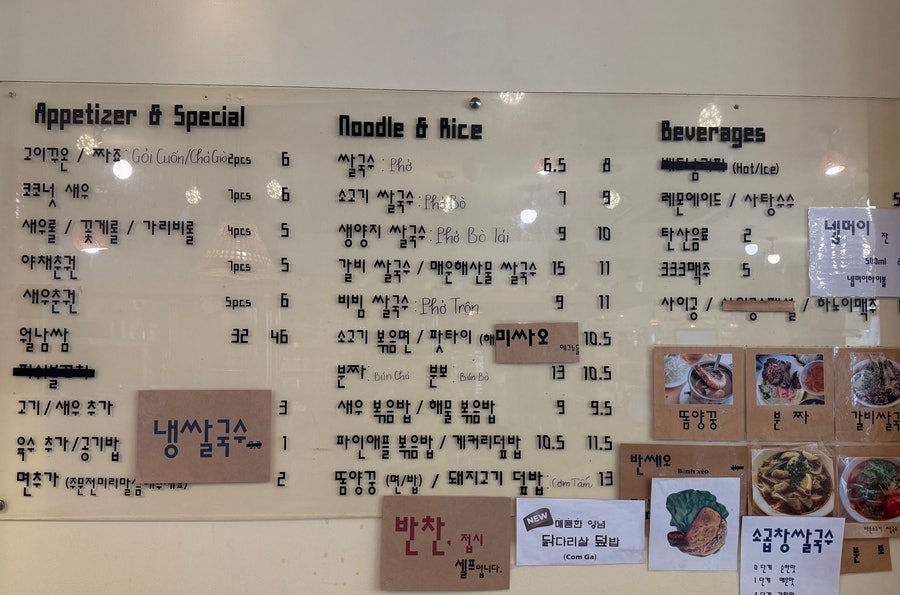 Appetizer & Special
고이꾸온 / 짜죠: Gỏi Cuốn/Chả Giò 2pcs 6
코코넛 새우 7pcs 6
새우롤 / 꽃게롤 / 가리비롤 4pcs 5
야채춘권 7pcs 5
새우춘권 5pcs 6
월남쌈 32 46
고기/새우 추가 3
육수 추가/공기밥 1
면추가 2
냉쌀국수
Noodle & Rice
쌀국수: Phở 6.5 8
소고기 쌀국수: Phở Bò 7 9
생양지 쌀국수: Phở Bò Tái 9 10
갈비 쌀국수 / 매운해산물 쌀국수 15 11
비빔 쌀국수: Phở Trộn 9 11
소고기 볶음면 / 팟타이 (해 10.5
미싸오
에그누들
분짜: Bún Chả 분보 Bún Bò 13 10.5
새우 볶음밥 / 해물 볶음밥 9 9.5
파인애플 볶음밥 / 게커리덮밥 10.5 11.5
똠양꿍 (면/밥) / 돼지고기 덮밥 Cơm Tấm 13
반찬, 접시
셀프입니다.
NEW 매콤한 양념
닭다리살 덮밥
(Com Ga)
Beverages
(Hot/Ice)
레몬에이드 / 사탕수수
탄산음료 2
333맥주 5
사이공 / / 하노이맥주
넵머이 잔
500ml
넵머이하이볼
똠양꿍
분 짜
갈비쌀국
반쎄오 Bánh xèo
분 보
소곱창쌀국수
0 단계 순한맛
1 단계 매운맛